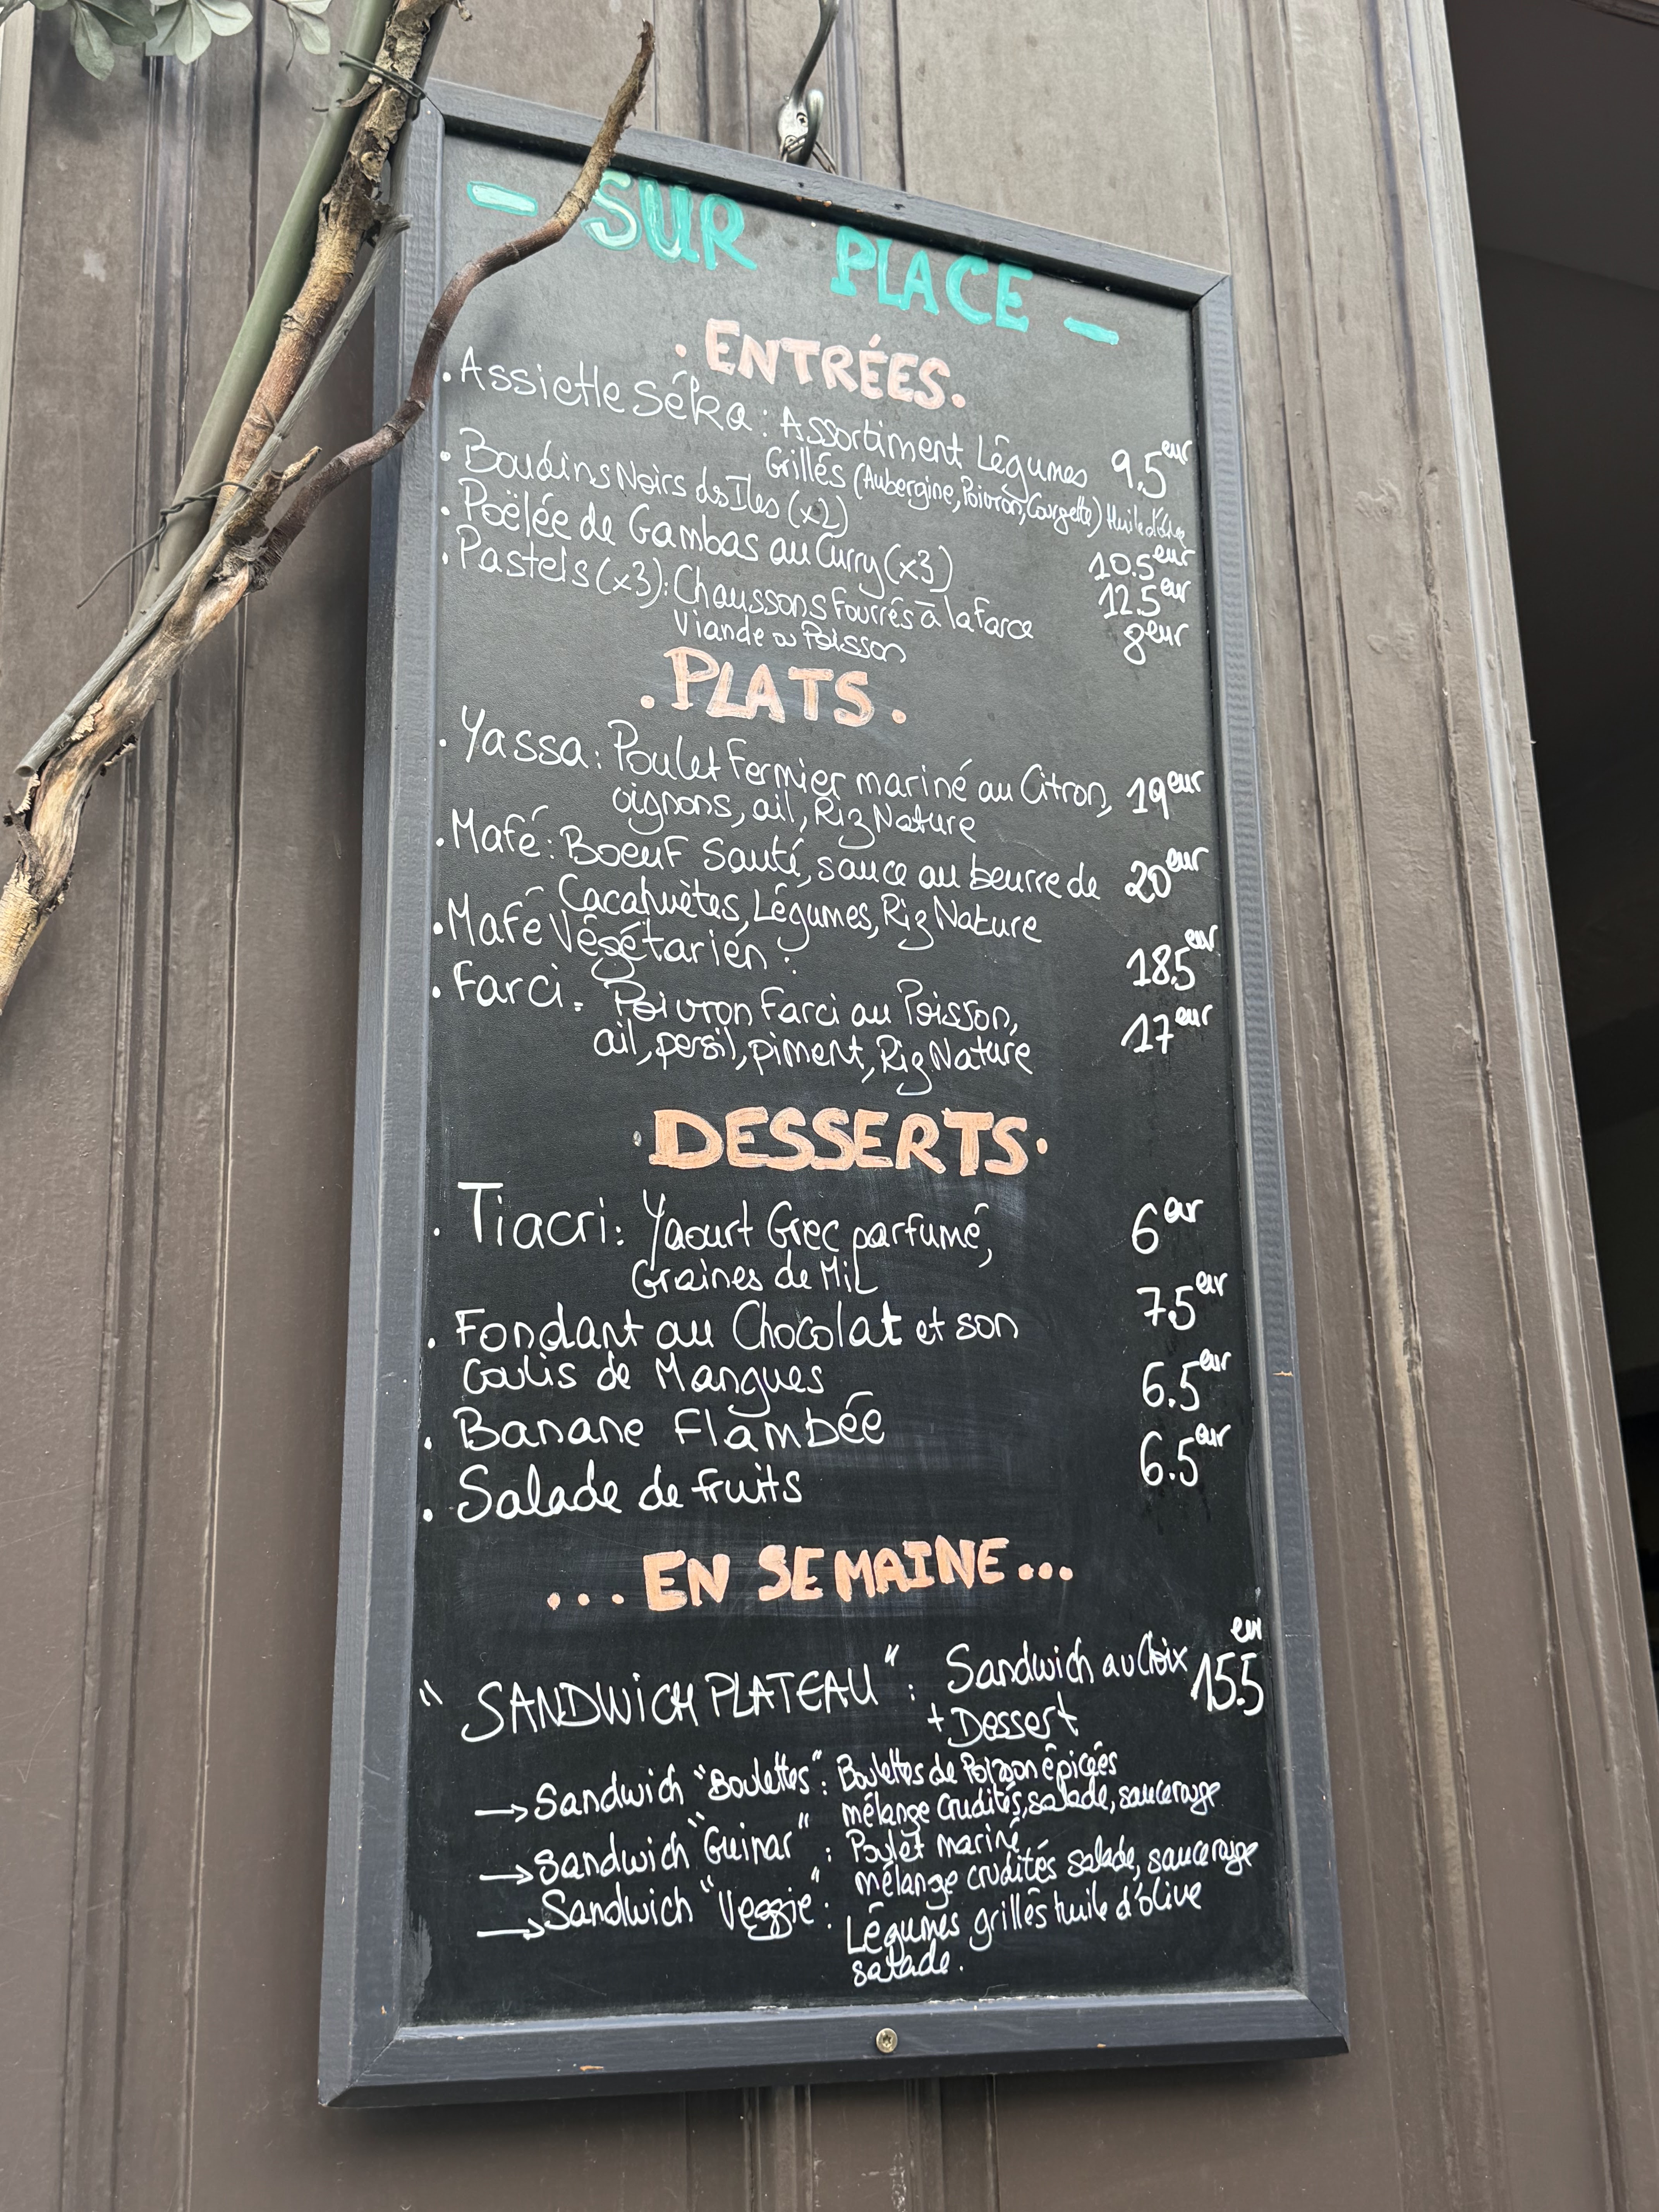 - SUR PLACE -
. ENTRÉES.
. Assiette Séka : Assortiment Légumes 9,5 eur
Grillés (Aubergine, Poivron, Courgette) Huile d'olive
. Boudins Noirs des Iles (x2) 10.5 eur
. Poëlée de Gambas au Curry (x3) 12.5 eur
. Pastels (x3) : Chaussons Fourrés à la Farce 8 eur
Viande ou Poisson
. PLATS .
. Yassa : Poulet Fermier mariné au Citron, 19 eur
oignons, ail, Riz Nature
. Mafé : Boeuf Sauté, sauce au beurre de 20 eur
Cacahuètes, Légumes, Riz Nature
. Mafé Végétarien : 18.5 eur
. Farci : Poivron Farci au Poisson, 17 eur
ail, persil, piment, Riz Nature
. DESSERTS .
. Tiacri : Yaourt Grec parfumé, 6 eur
Graines de Mil
. Fondant au Chocolat et son 7.5 eur
Coulis de Mangues
. Banane Flambée 6.5 eur
. Salade de fruits 6.5 eur
... EN SEMAINE ...
" SANDWICH PLATEAU " : Sandwich au Choix 15.5 eur
+ Dessert
→ Sandwich "Boulettes" : Boulettes de Poisson épicées
mélange Crudités, salade, sauce rouge
→ Sandwich "Guinar" : Poulet mariné
mélange crudités salade, sauce rouge
→ Sandwich "Veggie" : Légumes grillés huile d'olive
salade.